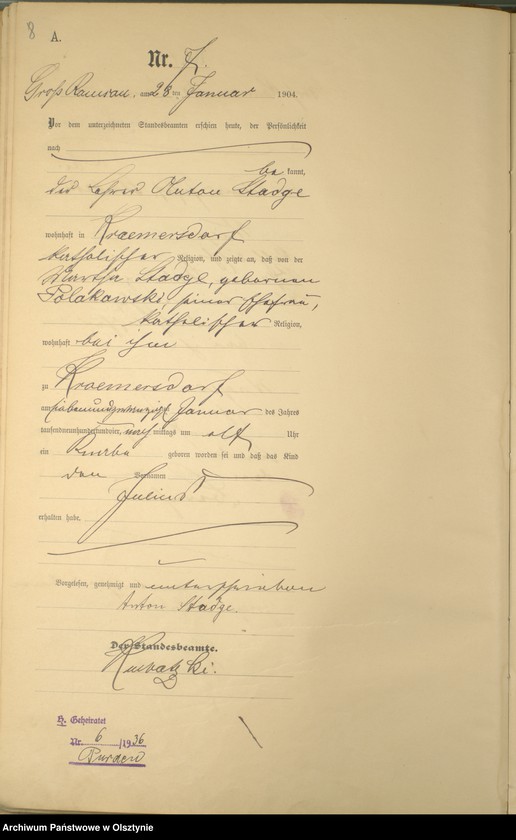 8
A.
Nr. 7.
Groß Ramsau, am 28 ten Januar 1904.
Vor dem unterzeichneten Standesbeamten erschien heute, der Persönlichkeit
nach
be kannt,
der Lehrer Anton Stadge
wohnhaft in Kraemersdorf
katholischer Religion, und zeigte an, daß von der
Martha Stadge, gebornen
Polakowski, seiner Ehefrau,
katholischer Religion,
wohnhaft bei ihm
zu Kraemersdorf
am siebenundzwanzigsten Januar des Jahres
tausendneunhundertundvier, nachmittags um elf Uhr
ein Knabe geboren worden sei und daß das Kind
den Vornamen
Julius
erhalten habe.
Vorgelesen, genehmigt und unterschrieben
Anton Stadge.
Der Standesbeamte.
H. Geheiratet
Nr. 6/1936
Purden
Archiwum Państwowe w Olsztynie